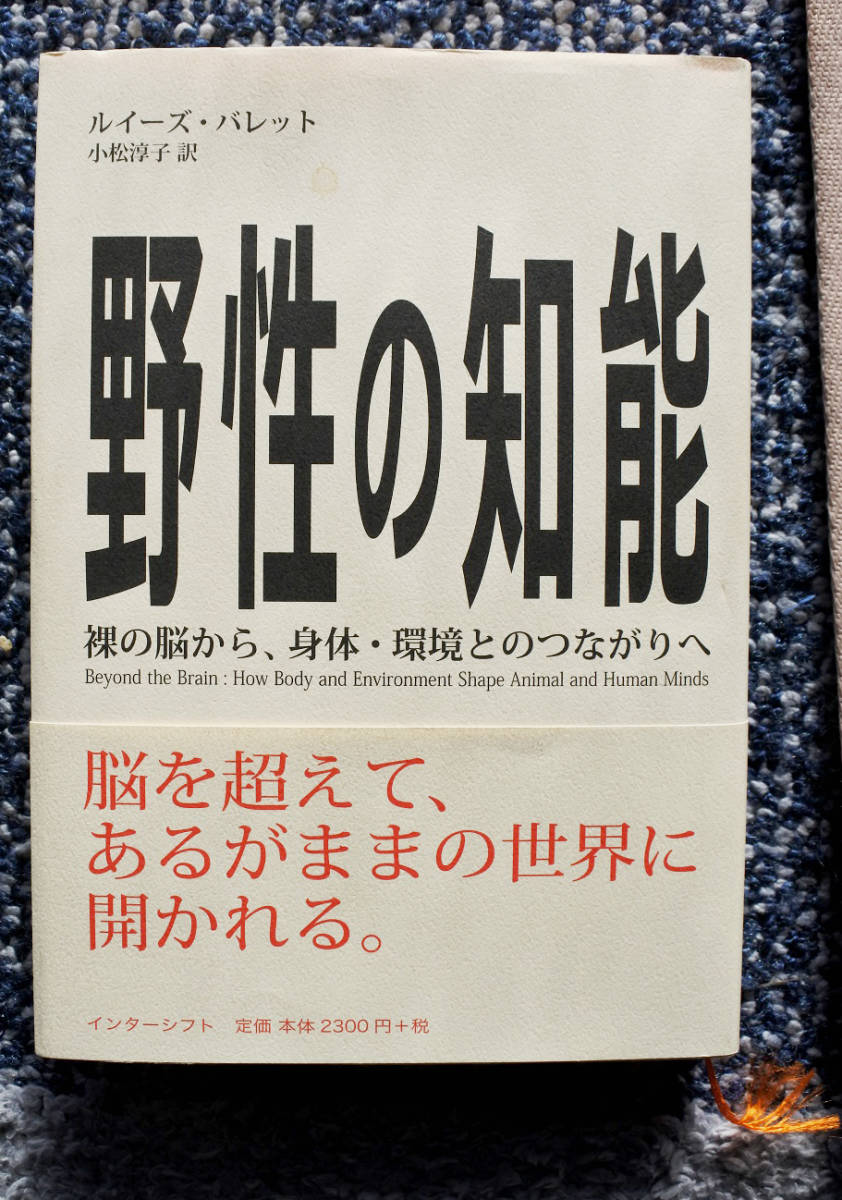 ルイーズ・バレット
小松淳子 訳
野性の知能
裸の脳から、身体・環境とのつながりへ
Beyond the Brain : How Body and Environment Shape Animal and Human Minds
脳を超えて、
あるがままの世界に
開かれる。
インターシフト 定価 本体2300円+税